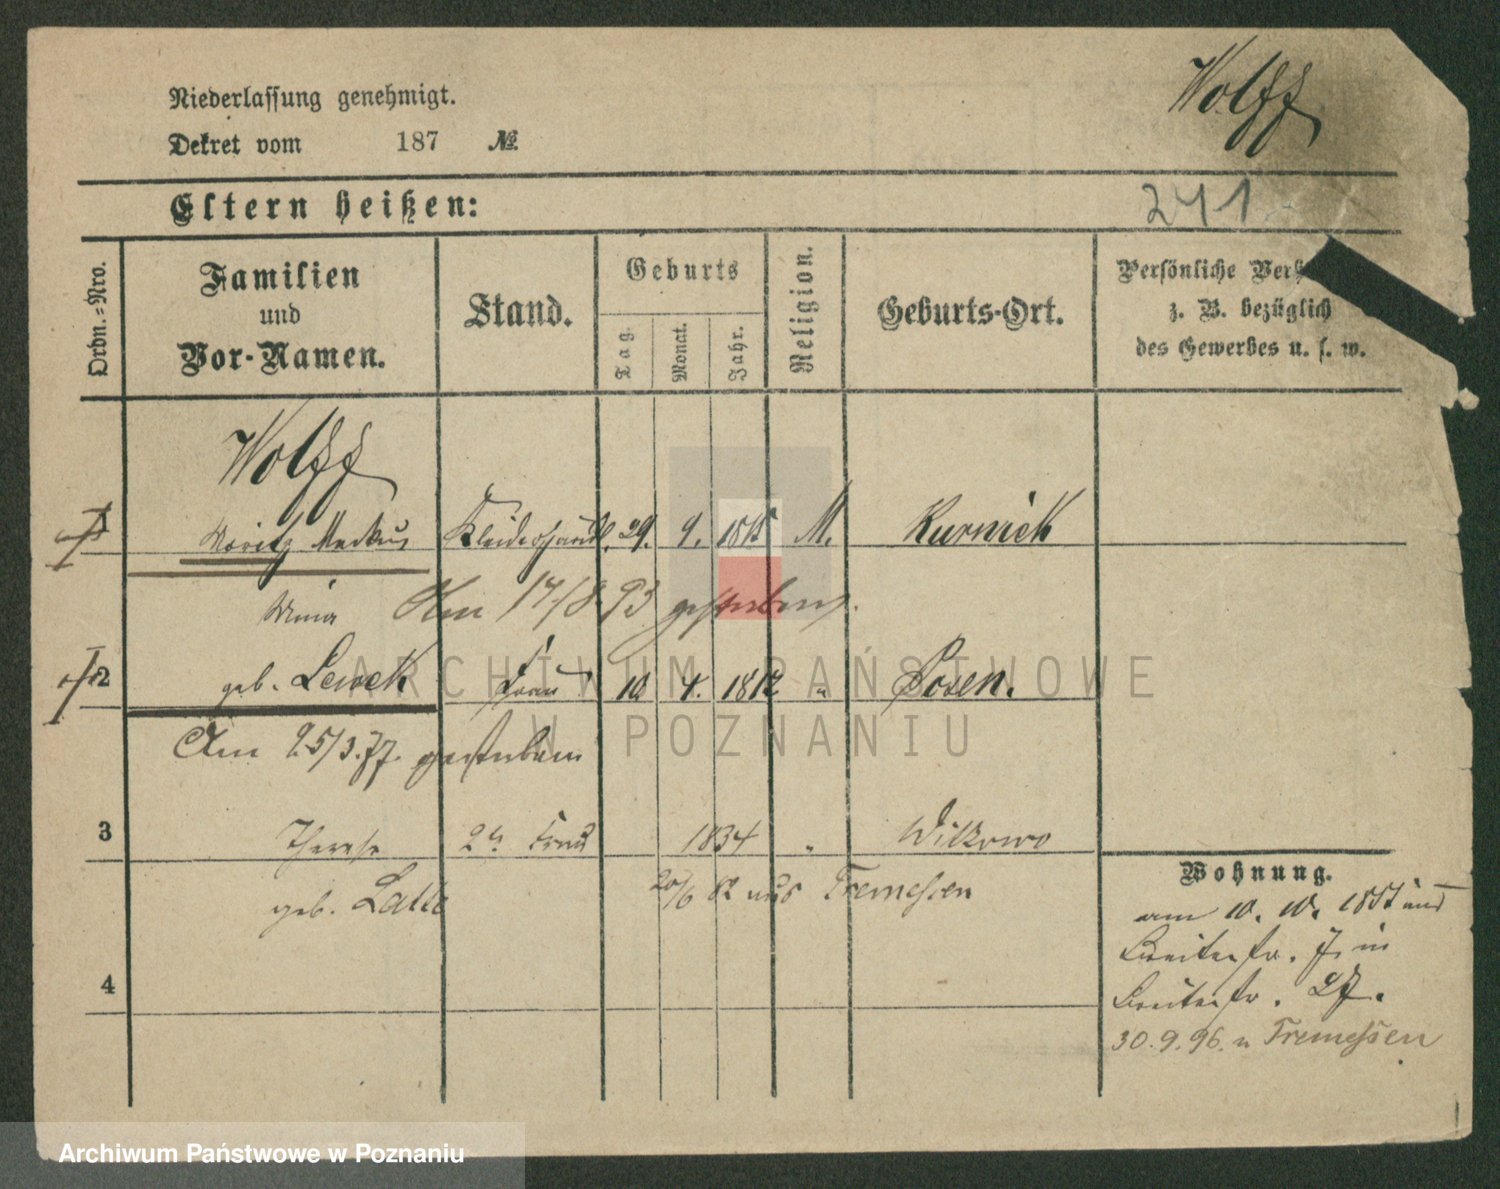 Wolff
Niederlassung genehmigt.
Dekret vom 187 №
Eltern heißen:
241.
Ordn.=Nro.
Familien
und
Vor-Namen.
Stand.
Geburts
Tag.
Monat.
Jahr.
Religion.
Geburts-Ort.
Persönliche
z. B. bezüglich
des Gewerbes u. s. w.
Wolff
1 Moritz Markus Kleiderhändl. 29. 9. 1815 M. Kurnick
Am 17/8 93 gestorben.
Mina
2 geb. Lewek Frau 10 4. 1812 " Posen.
Am 25/3.77. gestorben
3 Therese 2te Frau 1834 " Witkowo
geb. Latte 20/6 82 aus Tremessen
4
Wohnung.
am 10. 10. und
Breitestr. 7. in
Breitestr. 27.
30.9.96. n Tremessen
ARCHIWUM PAŃSTWOWE
W POZNANIU
Archiwum Państwowe w Poznaniu